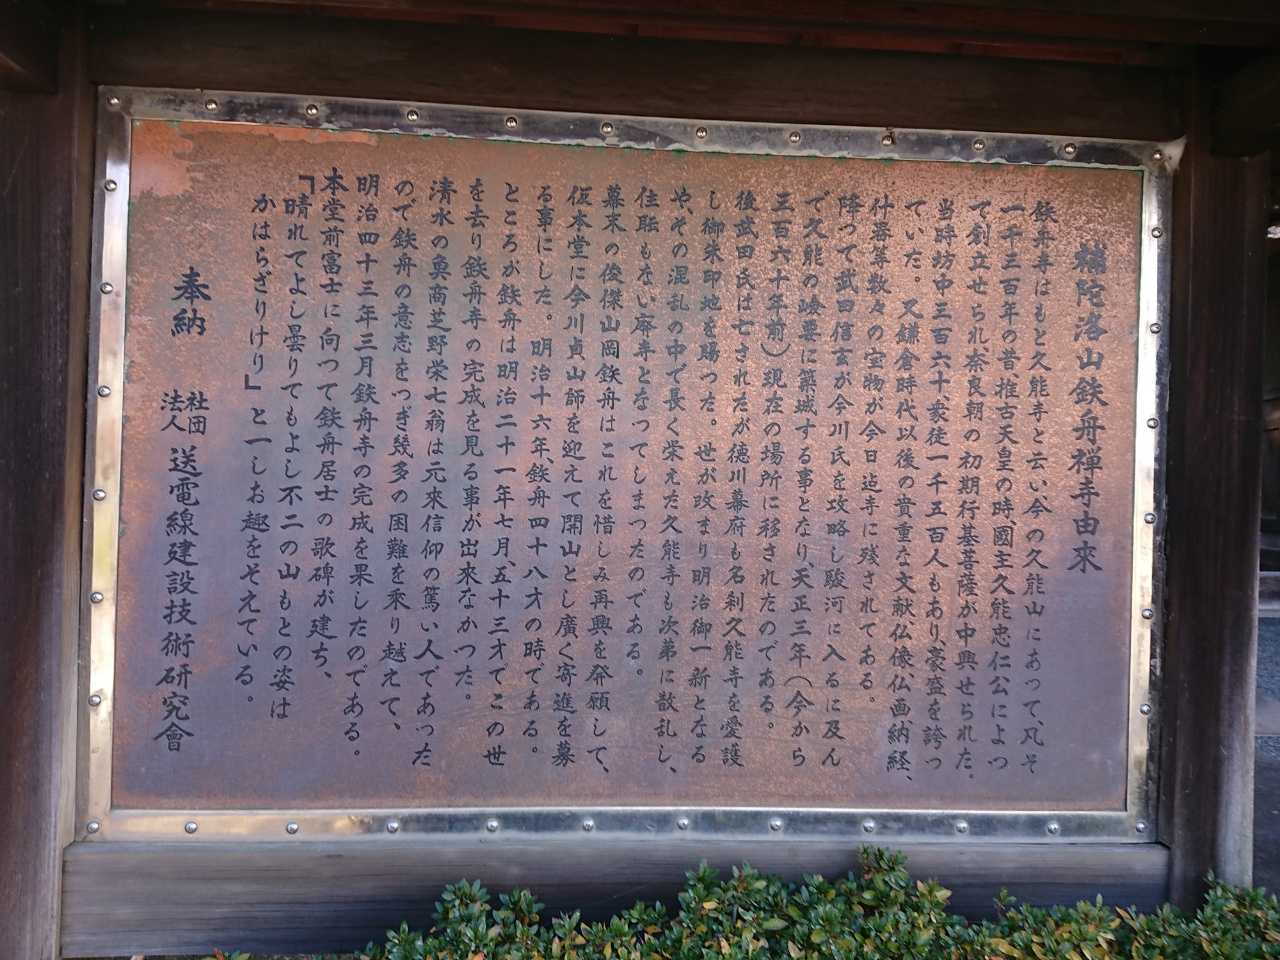 補陀洛山鉄舟禅寺由來
鉄舟寺はもと久能寺と云い今の久能山にあって、凡そ
一千三百年の昔推古天皇の時、國主久能忠仁公によつ
て創立せられ奈良朝の初期行基菩薩が中興せられた。
当時坊中三百六十、衆徒一千五百人もあり、豪盛を誇っ
ていた。又鎌倉時代以後の貴重な文献、仏像、仏画、納経、
什器等数々の宝物が今日迄寺に残されてある。
降つて武田信玄が今川氏を攻略し駿河に入るに及ん
で久能の嶮要に築城する事となり、天正三年(今から
三百六十年前)現在の場所に移されたのである。
後武田氏は亡されたが徳川幕府も名刹久能寺を愛護
し御朱印地を賜つた。世が改まり明治御一新となる
や、その混乱の中で長く栄えた久能寺も次第に散乱し、
住職もない廃寺となつてしまつたのである。
幕末の俊傑山岡鉄舟はこれを惜しみ再興を発願して、
仮本堂に今川貞山師を迎えて開山とし廣く寄進を募
る事にした。明治十六年、鉄舟四十八才の時である。
ところが鉄舟は明治二十一年七月、五十三才でこの世
を去り鉄舟寺の完成を見る事が出来なかつた。
清水の魚商芝野栄七翁は元来信仰の篤い人であった
ので鉄舟の意志をつぎ幾多の困難を乗り越えて、
明治四十三年三月鉄舟寺の完成を果したのである。
本堂前富士に向つて鉄舟居士の歌碑が建ち、
『晴れてよし曇りてもよし不二の山もとの姿は
かはらざりけり』と一しお趣をそえている。
奉納 社団法人 送電線建設技術研究會